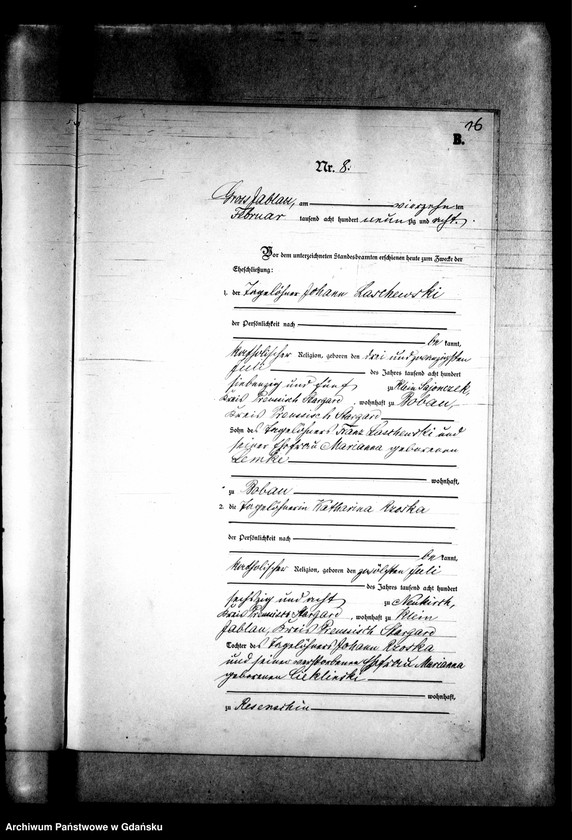 76
B.
Nr. 8.
Gross Jablau, am vierzehn ten
Februar tausend acht hundert neunzig und acht.
Vor dem unterzeichneten Standesbeamten erschienen heute zum Zwecke der
Eheschließung:
1. der Tagelöhner Johann Laschewski
der Persönlichkeit nach
bekannt,
katholischer Religion, geboren den drei und zwanzigsten
Juli des Jahres tausend acht hundert
siebenzig und fünf zu Klein
Kreis Preussisch Stargard, wohnhaft zu Bobau,
Kreis Preussisch Stargard
Sohn des Tagelöhners Franz Laschewski und
seiner Ehefrau Marianna geborenen
Lemki
wohnhaft,
zu Bobau
2. die Tagelöhnerin Katharina Rzoska
der Persönlichkeit nach
bekannt,
katholischer Religion, geboren den zwölften Juli
des Jahres tausend acht hundert
sechszig und acht zu Neukirch,
Kreis Preussisch Stargard, wohnhaft zu Klein
Jablau, Kreis Preussisch Stargard
Tochter des Tagelöhners Johann Rzoska
und seiner verstorbenen Ehefrau Marianna
geborenen
wohnhaft,
zu
Archiwum Państwowe w Gdańsku